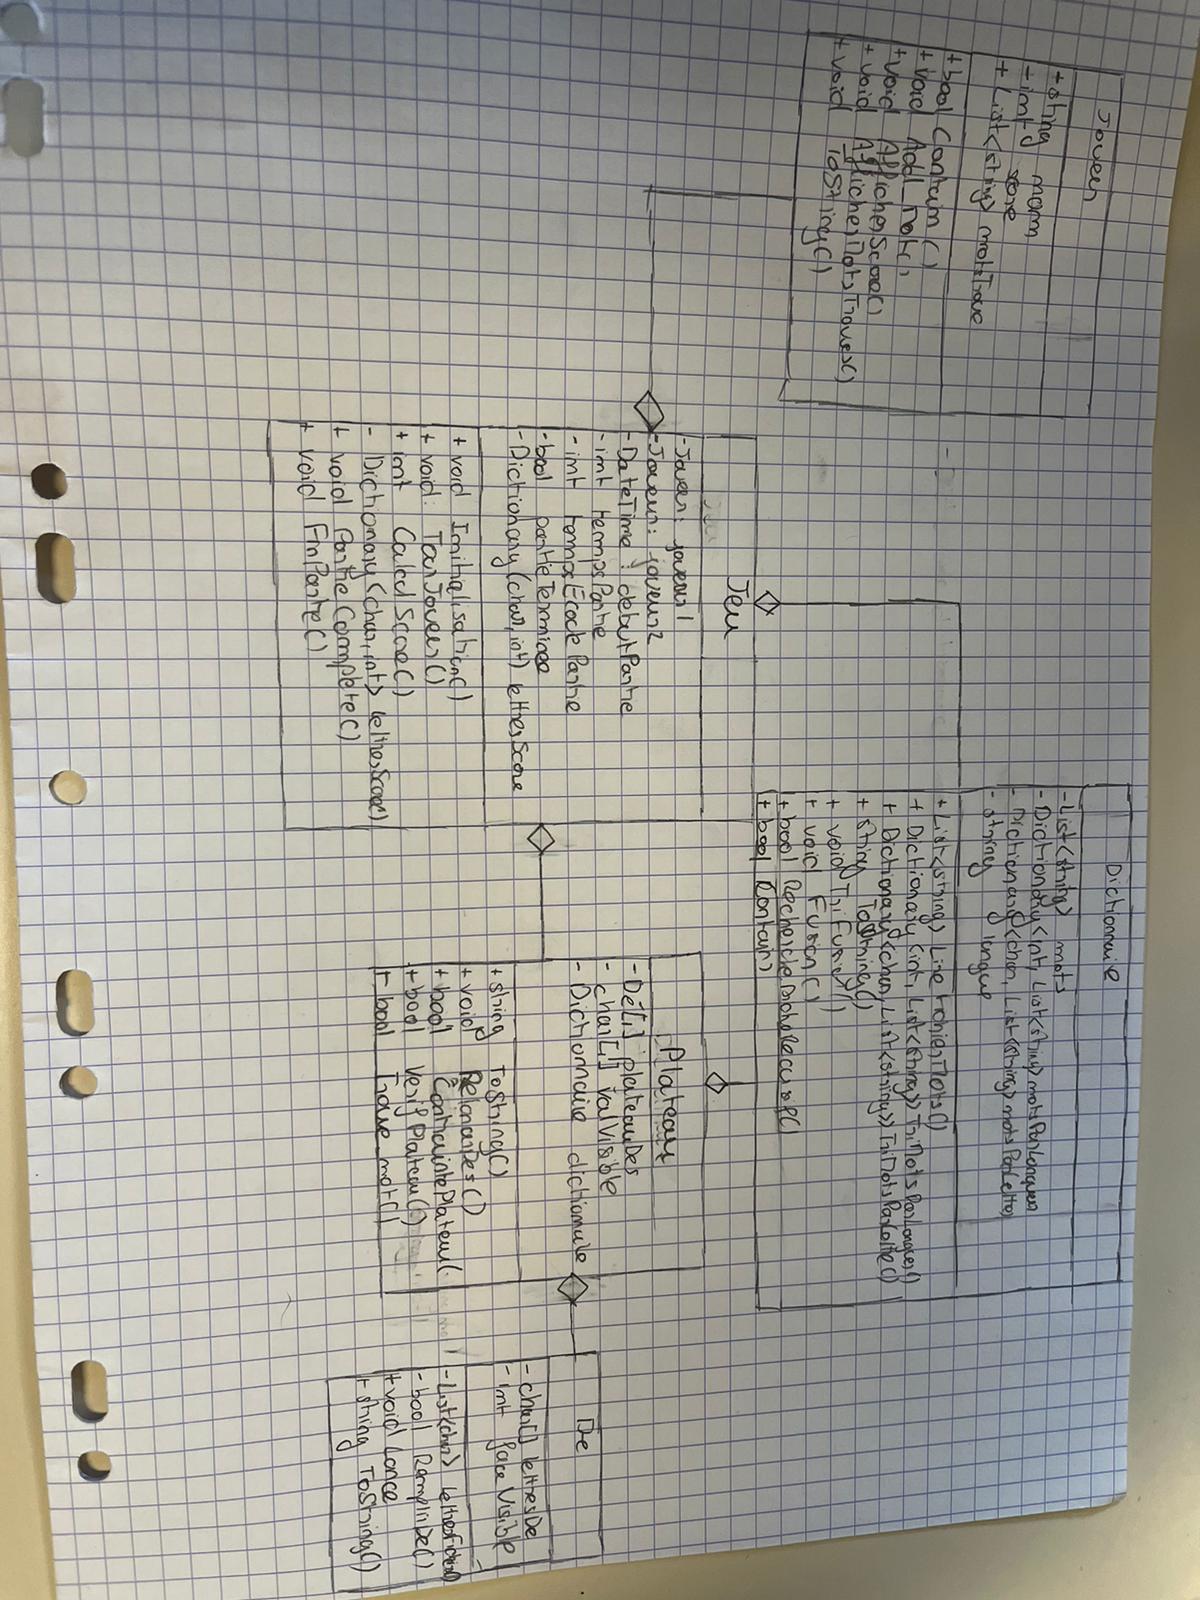 Joueur
+ string nom
- int score
+ List<string> motsTrouve
+ bool Contain()
+ void Add_Mot()
+ void AfficherScore()
+ void AfficherMotsTrouves()
+ void ToString()
Jeu
- Joueur: joueur1
- Joueur: joueur2
- DateTime: debutPartie
- int tempsPartie
- int tempsEcoulePartie
- bool partieTerminee
- Dictionary(char, int) lettresScore
+ void Initialisation()
+ void: TourJoueur()
+ int CalculScore()
- Dictionary<char, int> lettresScore()
+ void PartieComplete()
+ void FinPartie()
Dictionnaire
- List<string> mots
- Dictionary<int, List<string> motsParLongueur
- Dictionary<char, List<string> motsParLettre
- string langue
+ List<string> Lire FichierMots()
+ Dictionary<int, List<string>> TriMotsParLongueur()
+ Dictionary<char, List<string>> TriMotsParLettre()
+ string ToString()
+ void TriFusion()
+ void Fusion()
+ bool RechercheDichoRecursif()
+ bool Contain()
Plateau
- De[,] plateauDes
- char[,] valVisible
- Dictionnaire dictionnaire
+ string ToString()
+ void RelancerDes()
+ bool ContraintePlateau(
+ bool VerifPlateau()
+ bool Trouve_mot()
De
- char[] lettresDe
- int faceVisible
- List<char> lettresFichier()
- bool RemplirDe()
+ void Lance
+ string ToString()